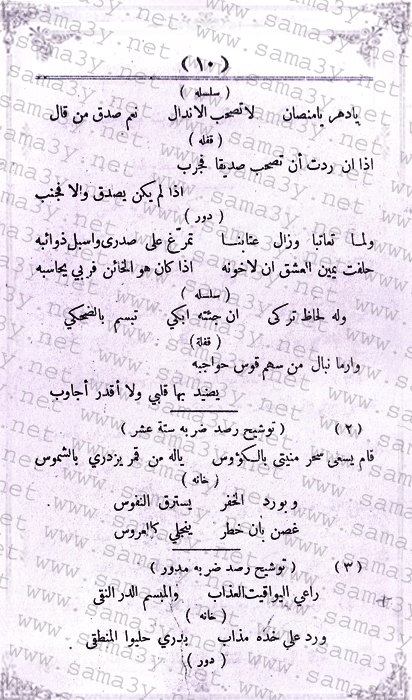 ( ١٠ )
( سلسله )
يادهر يامنصان    لاتصحب الاندال    نعم صدق من قال
( قفله )
اذا ان ردت أن تصحب صديقا فجرب
اذا لم يكن يصدق والا فجنب
( دور )
ولما تعاتبا وزال عتابنا    تمرّغ على صدرى واسبل ذوائبه
حلفت يمين العشق ان لاخونه    اذا كان هو الخائن فربي يحاسبه
( سلسله )
وله لحاظ تركى    ان جئته ابكي    تبسم بالضحكي
( قفلة )
وارما نبال من سهم قوس حواجبه
يصيد بها قلبي ولا أقدر أجاوب
( ٢ )    ( توشيح رصد ضربه ستة عشر )
قام يسعى سحر منيتي بالكؤوس    ياله من قمر يزدري بالشموس
( خانه )
وبورد الخفر    يسترق النفوس
غصن بان خطر    ينجلي كالعروس
( ٣ )    ( توشيح رصد ضربه مدور )
راعي اليواقيت العذاب    والمبسم الدر النقى
( خانه )
ورد علي خده مذاب    بدري حليوا المنطقى
( دور )
www.sama3y.net